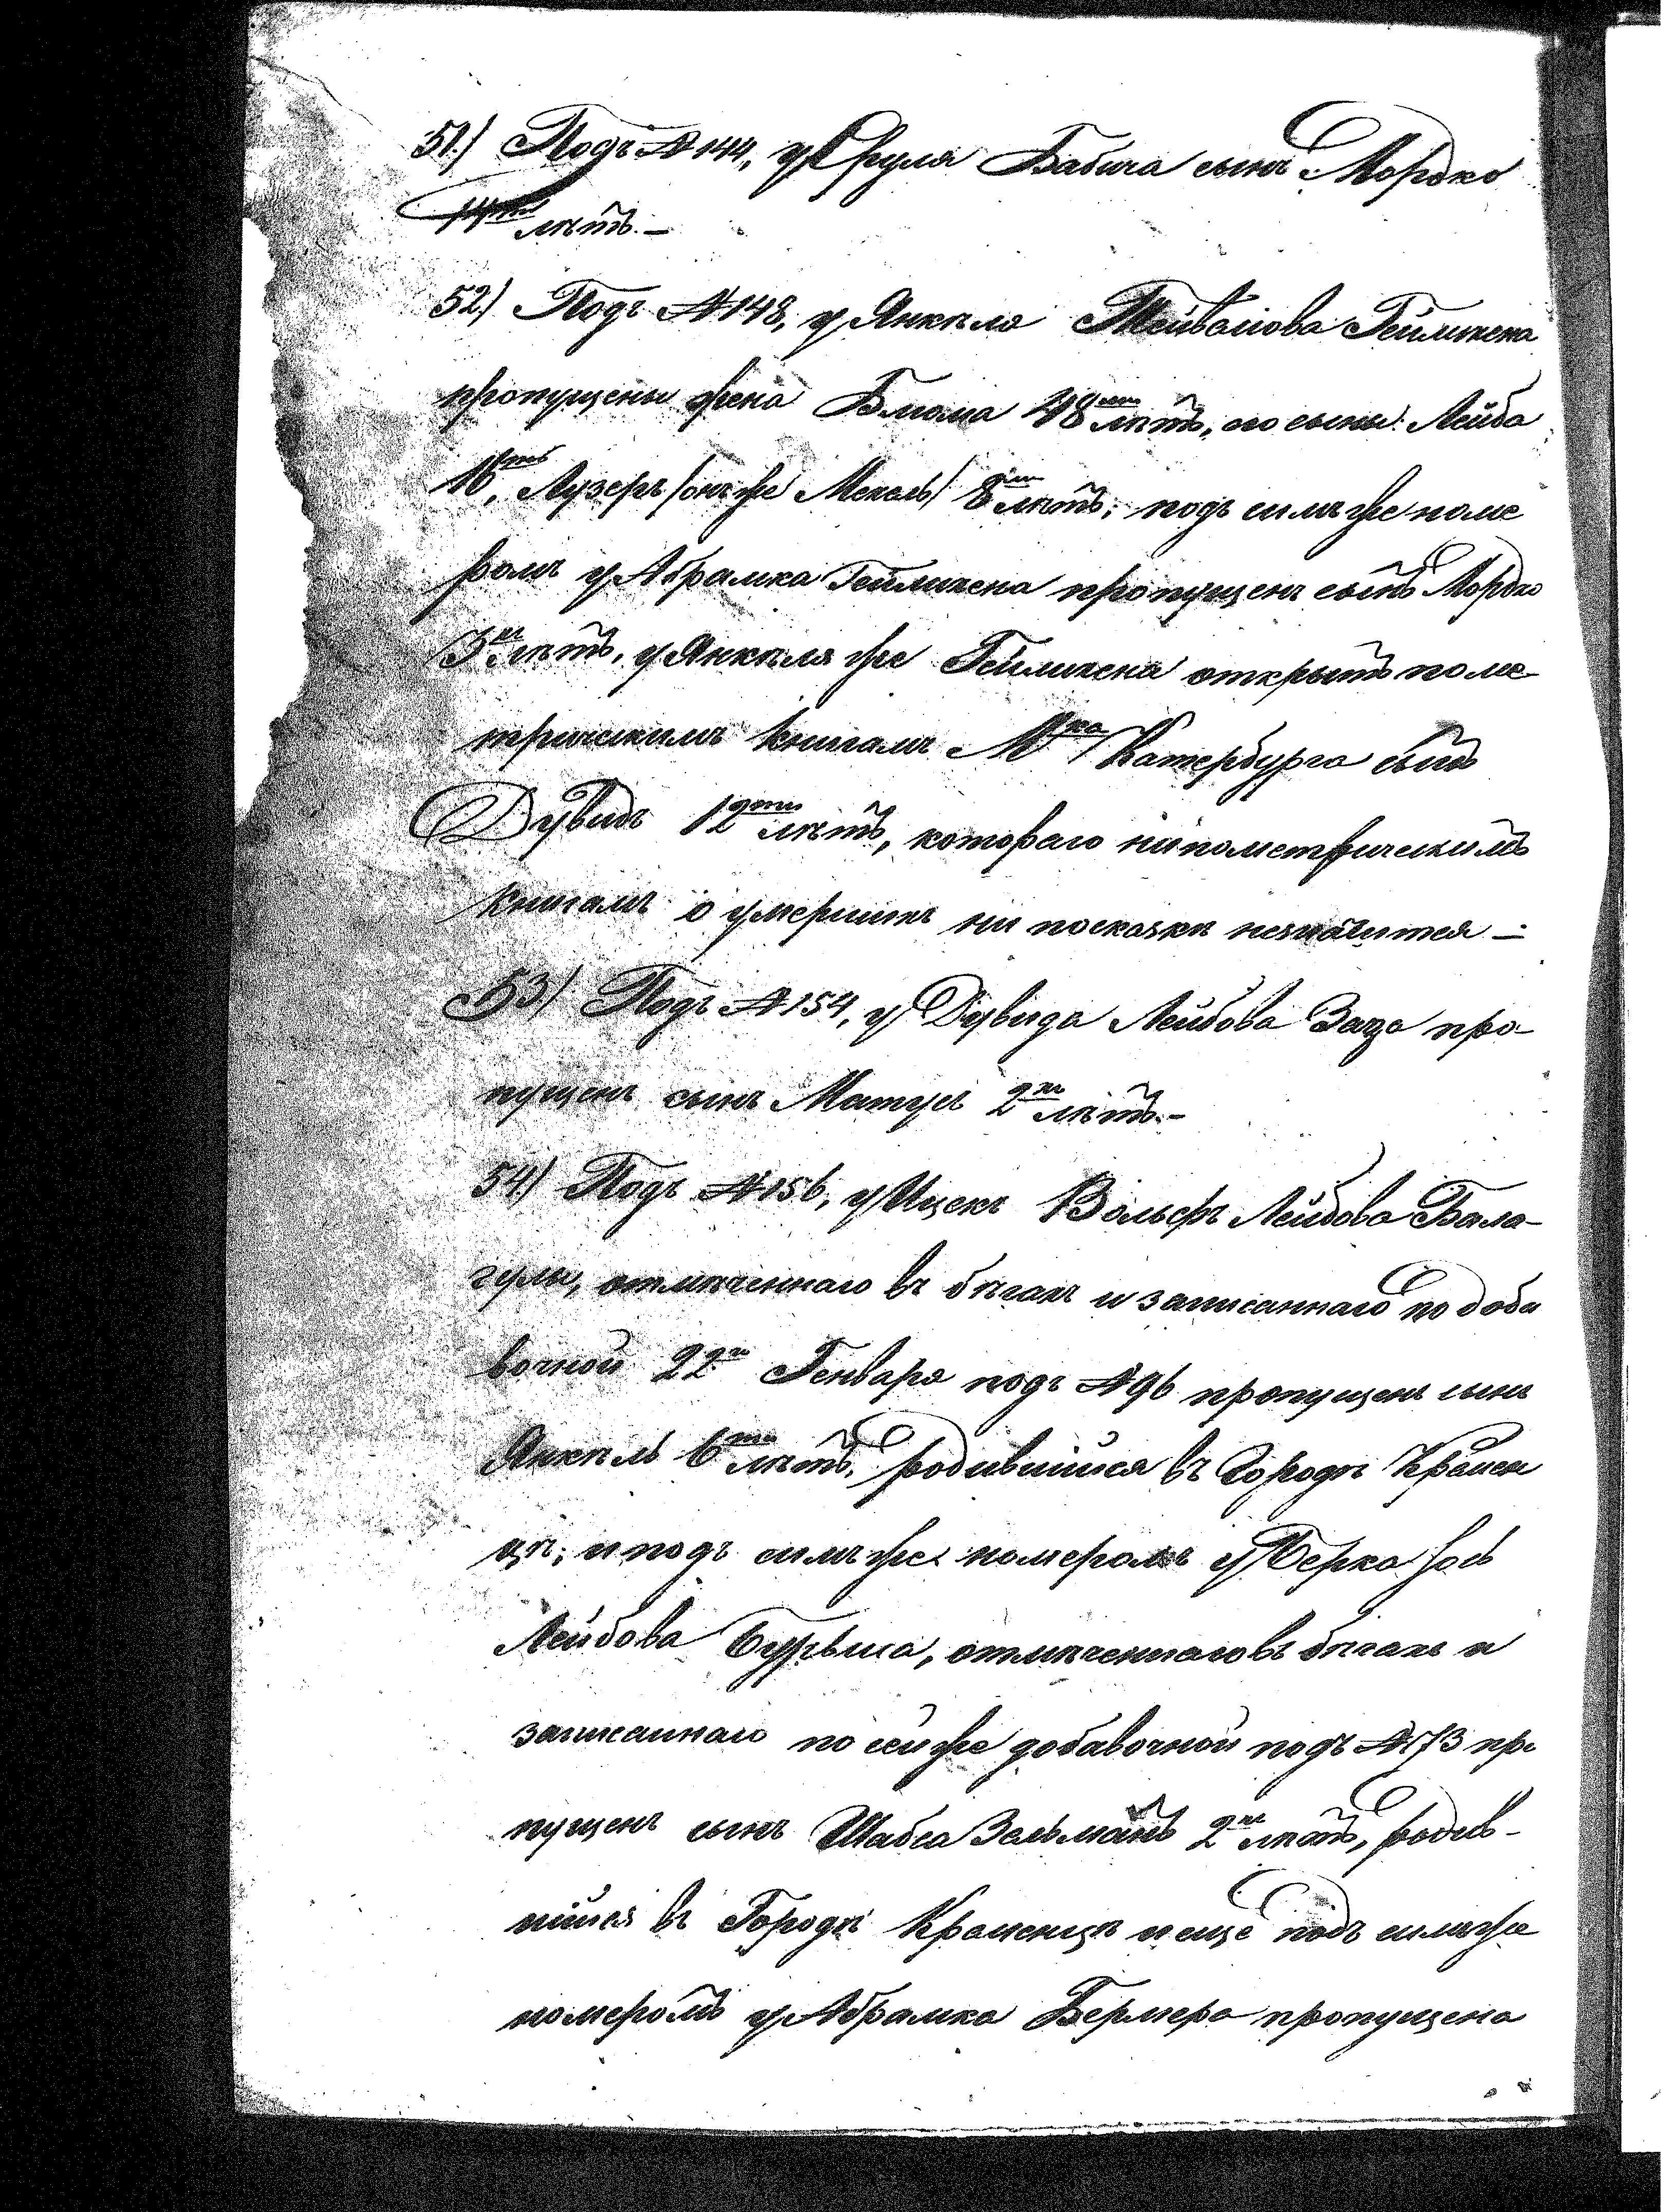 51.) Подъ №144, у Сруля Бабича сынъ Мордко
14ти лѣтъ.—
52.) Подъ №148, у Янкеля Тейвелова Геймихена
пропущены жена Блюма 48ми лѣтъ, по сыны: Лейба
16ть, Лузеръ /онъ же Мекель/ 8ми лѣтъ; подъ симъ же номе
ромъ у Абрамка Геймихена пропущенъ сынъ Мордко
3хъ лѣтъ, у Янкеля же Геймихена открытъ по ме-
трическимъ книгамъ Мка Катербурга сынъ
Дувидъ 12ти лѣтъ, котораго ни по метрическимъ
книгамъ о умершихъ ни по сказкѣ незначится —
53) Подъ №154, у Дувида Лейбова Заца про-
пущенъ сынъ Матусъ 2хъ лѣтъ.—
54) Подъ №156, у Ицекъ Вольфъ Лейбова Бала-
гулы, отмѣченнаго въ бѣгахъ и записаннаго по доба
вочной 22го Генваря подъ №96 пропущенъ сынъ
Янкель 6ти лѣтъ, родившійся въ Городѣ Кремен
цѣ; и подъ симъ же номеромъ у Берка Іось
Лейбова Бурыша, отмѣченнаго въ бѣгахъ и
записаннаго по сей же добавочной подъ №173 про
пущенъ сынъ Шабса Зельманъ 2хъ лѣтъ, родив-
шійся въ Городѣ Кременцѣ и еще подъ симъ же
номеромъ у Абрамка Бермера пропущена